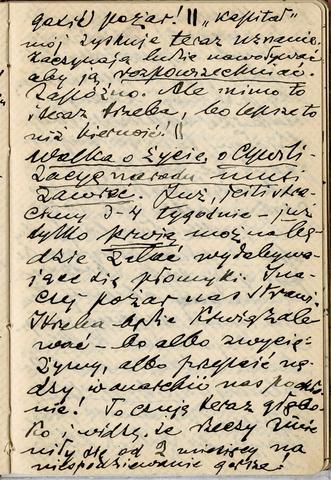 gasić pożar! || „Kapitał"
mój zyskuje teraz uznanie.
Zaczynają ludzie nawoływać
aby ją rozpowszechniać.
Zapóźno. Ale mimo to
i teraz trzeba, bo lepsze to
niż bierność! ||
Walka o życie, o Cywili-
zację narodu musi
zawrzeć. Już, jeśli stra-
cimy 3-4 tygodnie – już
tylko krwią można bę-
dzie zalać wydobywa-
jące się płomyki. Ina-
czej pożar nas strawi.
Trzeba będzie
wać – bo albo zwycię-
żymy, albo przejście nę-
dzy i anarchii nas
nie! To czuję teraz głębo-
ko i widzę, że rzeczy zmie-
niły się od 2 miesięcy na
niespodziewanie gorsze.